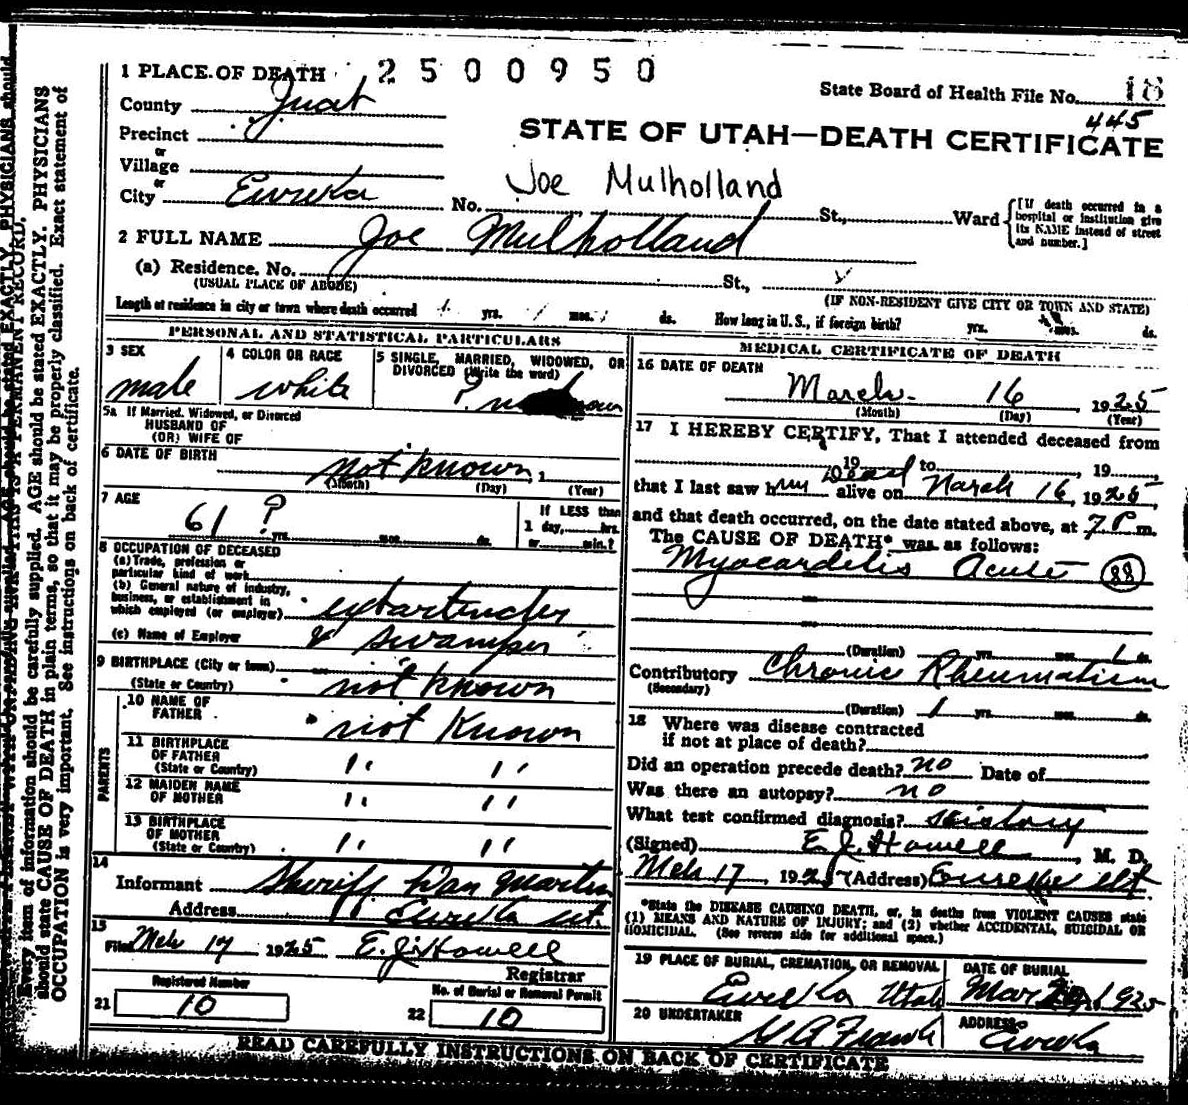 1 PLACE OF DEATH 2500950
State Board of Health File No. 18
445
County Juab
STATE OF UTAH—DEATH CERTIFICATE
Precinct
or
Village
or
Joe Mulholland
City Eureka No. St., Ward
[If death occurred in a hospital or institution give its NAME instead of street and number.]
2 FULL NAME Joe Mulholland
(a) Residence. No. St.,
(USUAL PLACE OF ABODE) (IF NON-RESIDENT GIVE CITY OR TOWN AND STATE)
Length of residence in city or town where death occurred yrs. mos. ds. How long in U. S., if foreign birth? yrs. mos. ds.
PERSONAL AND STATISTICAL PARTICULARS
3 SEX
male
4 COLOR OR RACE
white
5 SINGLE, MARRIED, WIDOWED, OR
DIVORCED (Write the word)
?
5a If Married, Widowed, or Divorced
HUSBAND OF
(OR) WIFE OF
6 DATE OF BIRTH
not known, 1
(Month) (Day) (Year)
7 AGE
61 ? yrs. mos. ds.
If LESS than
1 day, hrs.
or min.?
8 OCCUPATION OF DECEASED
(a) Trade, profession or
particular kind of work
(b) General nature of industry,
business, or establishment in
which employed (or employer) exbartender
(c) Name of Employer & swamper
9 BIRTHPLACE (City or town)
(State or Country) not known
PARENTS
10 NAME OF
FATHER not Known
11 BIRTHPLACE
OF FATHER
(State or Country) " "
12 MAIDEN NAME
OF MOTHER " "
13 BIRTHPLACE
OF MOTHER
(State or Country) " "
14
Informant Sheriff Dan Martin
Address Eureka Ut.
15
Filed Mch 17 1925 E. J. Howell
Registrar
Registered Number
21 10
No. of Burial or Removal Permit
22 10
MEDICAL CERTIFICATE OF DEATH
16 DATE OF DEATH
March 16, 1925
(Month) (Day) (Year)
17 I HEREBY CERTIFY, That I attended deceased from
19 to , 19
Dead
that I last saw him alive on March 16, 1925
and that death occurred, on the date stated above, at 7 P m.
The CAUSE OF DEATH* was as follows:
Myocarditis Acute 88
(Duration) yrs. mos. 1 ds.
Contributory Chronic Rheumatism
(Secondary)
(Duration) 1 yrs. mos. ds.
18 Where was disease contracted
if not at place of death?
Did an operation precede death? no Date of
Was there an autopsy? no
What test confirmed diagnosis? History
(Signed) E. J. Howell, M. D.
Mch 17, 1925 (Address) Eureka Ut
*State the DISEASE CAUSING DEATH, or, in deaths from VIOLENT CAUSES state
(1) MEANS AND NATURE OF INJURY; and (2) whether ACCIDENTAL, SUICIDAL OR
HOMICIDAL. (See reverse side for additional space.)
19 PLACE OF BURIAL, CREMATION, OR REMOVAL
Eureka Utah
DATE OF BURIAL
Mar 1925
20 UNDERTAKER
ADDRESS
Eureka
READ CAREFULLY INSTRUCTIONS ON BACK OF CERTIFICATE
Every item of information should be carefully supplied. AGE should be stated EXACTLY. PHYSICIANS
should state CAUSE OF DEATH in plain terms, so that it may be properly classified. Exact statement of
OCCUPATION is very important. See instructions on back of certificate.